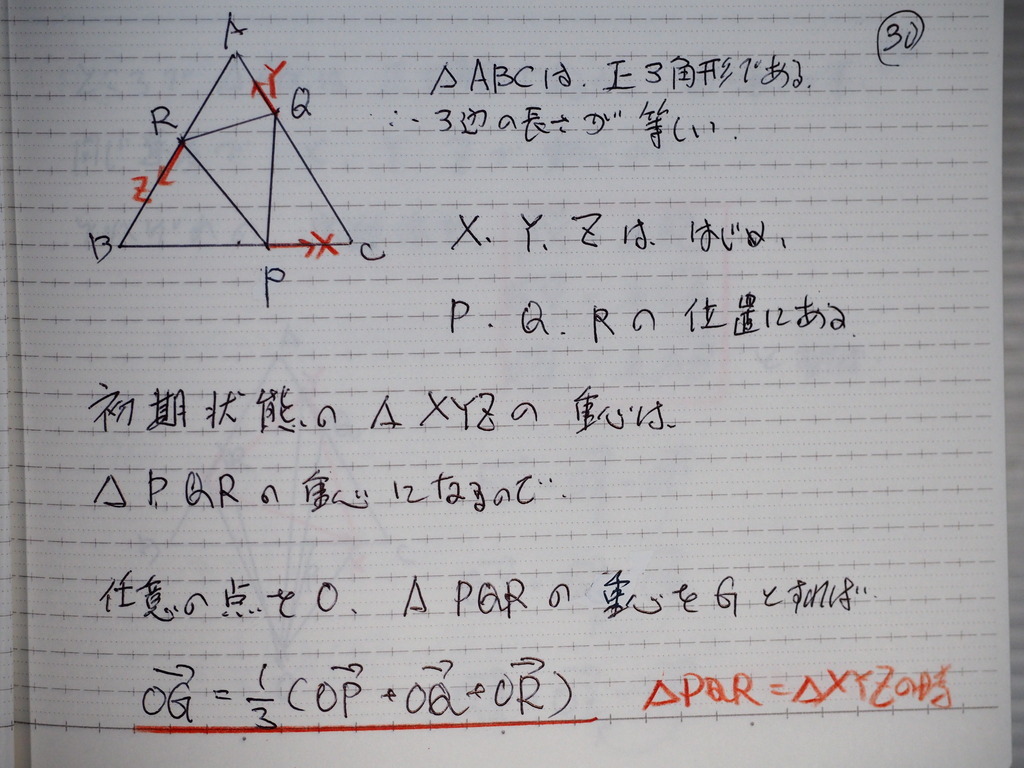 30
△ABCは、正3角形である。
∴ 3辺の長さが等しい。
A
Y
Q
R
Z
B
X
C
P
X、Y、Zは、はじめ、
P、Q、Rの位置にある。
初期状態の△XYZの重心は、
△PQRの重心になるので、
任意の点をO、△PQRの重心をGとすれば、
OG = 1/3 (OP + OQ + OR) △PQR=△XYZの時